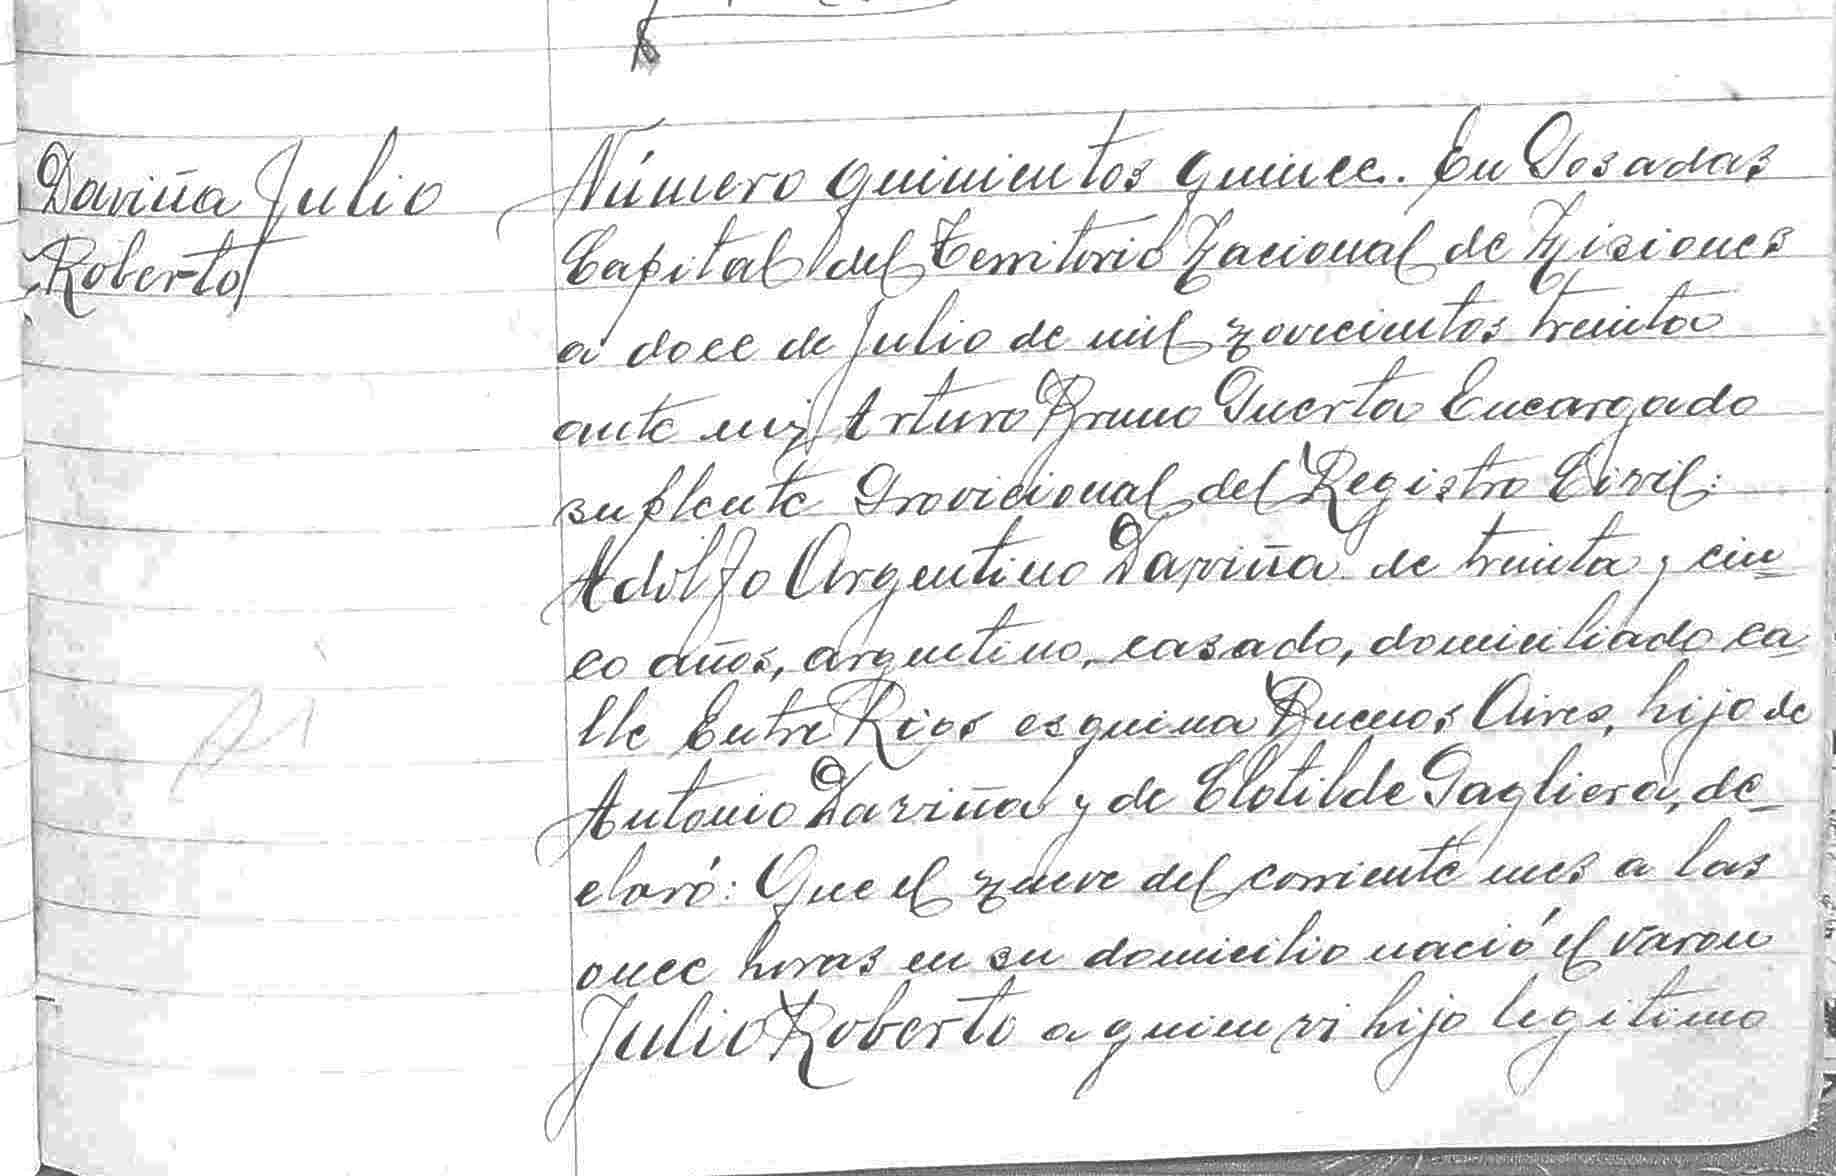 Daviña Julio
Roberto
Número quinientos quince. En Posadas
Capital del Territorio Nacional de Misiones
a doce de Julio de mil novecientos treinta
ante mi, Arturo Bruno Puerta Encargado
suplente Provicional del Registro Civil:
Adolfo Argentino Daviña de treinta y cin=
co años, argentino, casado, domiciliado ca-
lle Entre Rios esquina Buenos Aires, hijo de
Antonio Daviña y de Clotilde Gagliera, de-
claró: Que el nueve del corriente mes a las
once horas en su domicilio nació el varon
Julio Roberto a quien vi hijo legitimo